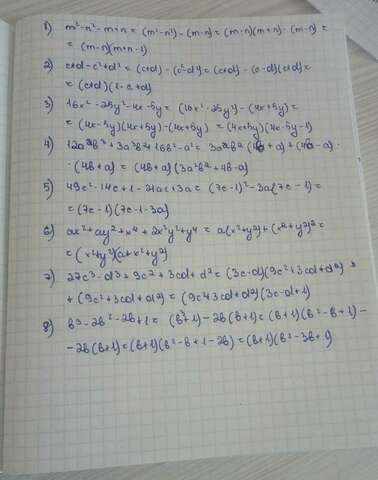 1) m²-n²-m+n = (m²-n²)-(m-n) = (m-n)(m+n)-(m-n) =
= (m-n)(m+n-1)
2) c+d-c²+d² = (c+d)-(c²-d²) = (c+d)-(c-d)(c+d) =
= (c+d)(1-c+d)
3) 16x²-25y²-4x-5y = (16x²-25y²)-(4x+5y) =
= (4x-5y)(4x+5y)-(4x+5y) = (4x+5y)(4x-5y-1)
4) 12a²b³+3a³b²+16b²-a² = 3a²b²(4b+a)+(4b-a)·
·(4b+a) = (4b+a)(3a²b²+4b-a)
5) 49c²-14c+1-21ac+3a = (7c-1)²-3a(7c-1) =
= (7c-1)(7c-1-3a)
6) ax²+ay²+x⁴+2x²y²+y⁴ = a(x²+y²)+(x²+y²)² =
= (x²+y²)(a+x²+y²)
7) 27c³-d³+9c²+3cd+d² = (3c-d)(9c²+3cd+d²)+
+(9c²+3cd+d²) = (9c²+3cd+d²)(3c-d+1)
8) b³-2b²-2b+1 = (b³+1)-2b(b+1) = (b+1)(b²-b+1)-
-2b(b+1) = (b+1)(b²-b+1-2b) = (b+1)(b²-3b+1)